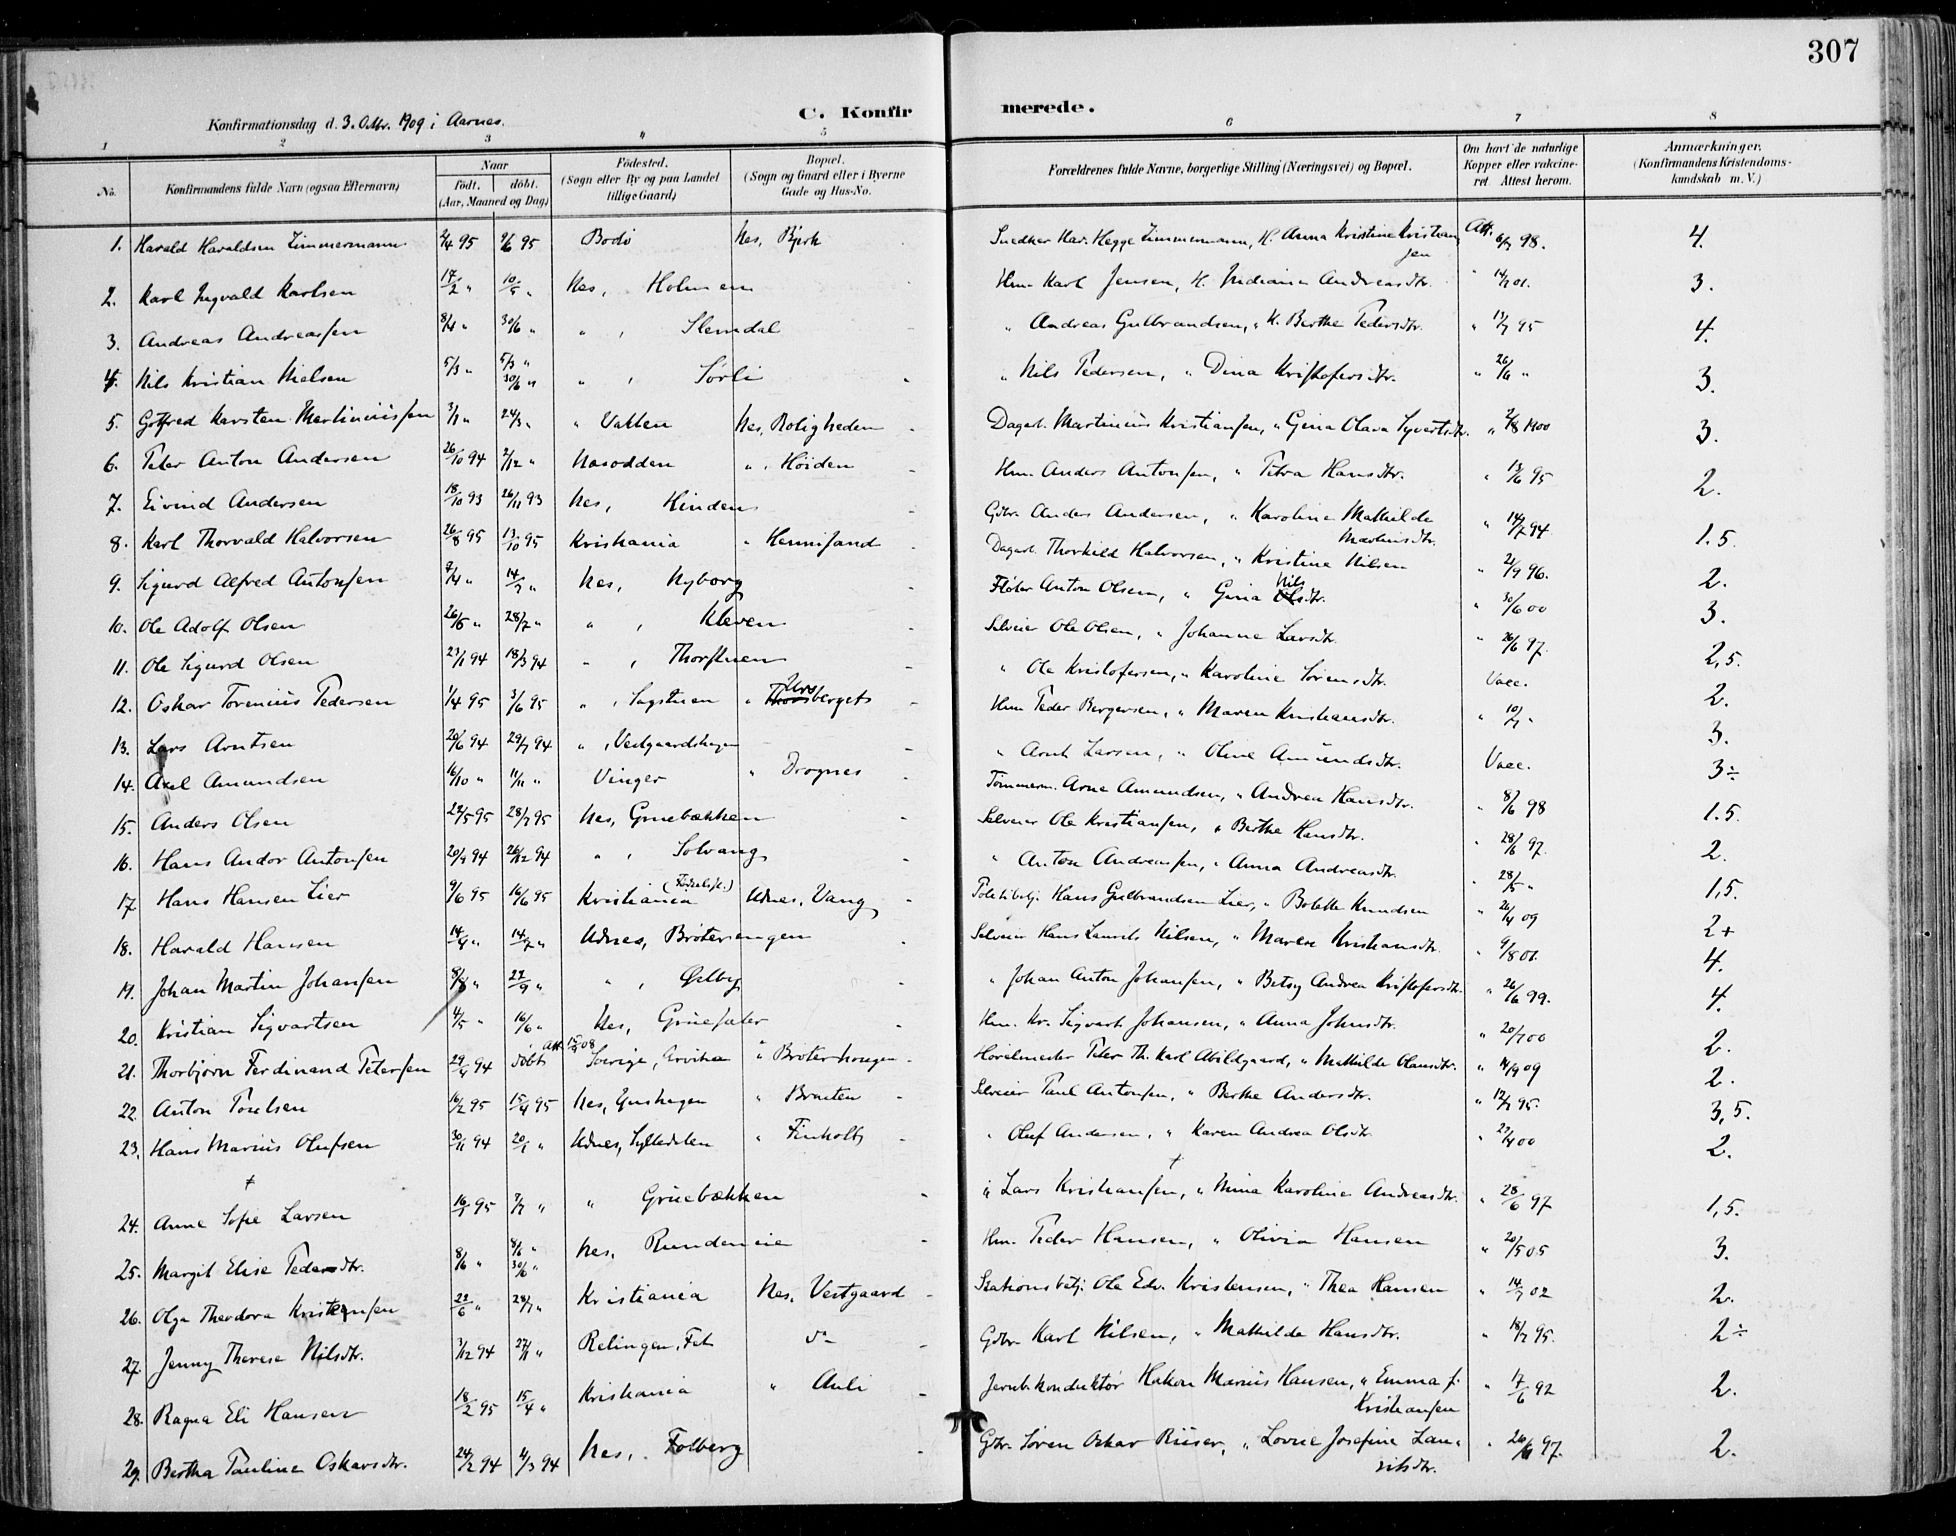 307
Konfirmationsdag d. 3. Oktbr. 1909 i Aarnes.
C. Konfirmerede.
1 2 3 4 5 6 7 8
No. Konfirmandens fulde Navn (ogsaa Efternavn)
Naar født. døbt. (Aar, Maaned og Dag)
Fødested. (Sogn eller By og paa Landet tillige Gaard)
Bopæl. (Sogn og Gaard eller i Byerne Gade og Hus-No.
Forældrenes fulde Navne, borgerlige Stilling (Næringsvei) og Bopæl.
Om havt de naturlige Kopper eller vakcineret. Attest herom.
Anmærkninger. (Konfirmandens Kristendomskundskab m. V.)
1. Harald Haraldsen Zimmermann 2/4 95 9/6 95 Bodø Nes, Bjerk Snedker Har. Hegge Zimmermann, H. Anna Kristine Kristiansen Att. 6/7 98. 4.
2. Karl Ingvald Karlsen 17/2 " 10/5 " Nes, Holmen Hm. Karl Jensen, H. Indiana Andreasdtr. " 14/7 01. 3.
3. Andreas Andreassen 8/4 " 30/6 " " , Slemdal " Andreas Gulbrandsen, " H. Berthe Pedersdtr. " 13/7 95 4.
4. Nils Kristian Nielsen 5/3 " 5/3 " 30/6 " " , Sørli " Nils Pedersen, " Dina Kristofersdtr. " 26/6 " 3.
5. Gotfred Karsten Martiniussen 3/1 " 24/3 " " Vakten Nes, Roligheden Dagarb. Martinius Kristiansen, " Gina Olava Syvertsdtr. " 2/8 1900 3.
6. Peter Anton Andersen 26/10 94 2/12 " Næsodden " , Høiden Hm. Anders Antonsen, " Petra Hansdtr. " 13/6 95 2.
7. Eivind Andersen 18/10 93 26/11 93 Nes, Hinden Gbr. Anders Andersen, " Karoline Mathilde Martinsdtr. " 14/7 94 1.5.
8. Karl Thorvald Halvorsen 26/8 95 13/10 95 Kristiania " Hennisand Dagarb. Thorkild Halvorsen, " Kristine Nilsen " 21/9 96. 2.
9. Sigurd Alfred Antonsen 7/4 " 14/7 " Nes, Nyborg Fløter Anton Olsen, " Gina Nilsdtr. " 30/6 00 3.
10. Ole Adolf Olsen 26/5 " 28/7 " " , Kleven Selveier Ole Olsen, " Johanne Larsdtr. " 26/6 97. 2,5.
11. Ole Sigurd Olsen 23/1 94 18/3 94 " , Thorstuen " Ole Kristofersen, " Karoline Sørensdtr. Vacc. 2.
12. Oskar Torenius Pedersen 1/4 95 3/6 95 " , Sagstuen " bergets Hm Peder Bergersen, " Maren Kristiansdtr. " 10/7 " 3.
13. Lars Arntsen 20/6 94 29/7 94 " , Vestgaardshagen " Arnt Larsen, " Oline Amundsdtr. Vacc. 3÷
14. Axel Amundsen 16/10 " 11/11 " Vinger " Drognes Tømmerm. Arne Amundsen, " Andrea Hansdtr. " 8/6 98 1.5.
15. Anders Olsen 22/5 95 28/7 95 Nes, Gruebækken Selveier Ole Kristiansen, " Berthe Hansdtr. " 28/6 97. 2.
16. Hans Andor Antonsen 20/9 94 26/12 94 " , Solvang " Anton Andreassen, " Anna Andreasdtr. " 28/5 " 1,5.
17. Hans Hansen Lier 9/6 95 16/6 95 Kristiania (Fødselsst.) Udnes, Vang Politibetj. Hans Gulbrandsen Lier, " Bolette Knudsen " 26/4 09 2+
18. Harald Hansen 14/4 " 14/7 " Udnes, Brøterengen Selveier Hans Laurits Nilsen, " Maren Kristiansdtr. " 9/8 01. 4.
19. Johan Martin Johansen 8/8 " 22/9 " " , Ølby " Johan Anton Johansen, " Betsy Andrea Kristofersdtr. " 26/6 99. 4.
20. Kristian Sigvartsen 4/5 " 16/6 " Nes, Gruesæter Hm. Kr. Sigvart Johansen, " Anna Johnsdtr. " 20/7 00 2.
21. Thorbjørn Ferdinand Petersen 29/4 94 døbt Att. 15/9 08 Sverige, Arvika " Brøterhougen Hovelmester Peter Th. Karl Abildgaard, " Mathilde Olausdtr. " 14/9 09 2.
22. Anton Paulsen 16/2 95 15/4 95 Nes, Gushagen " Braaten Selveier Paul Antonsen, " Berthe Andersdtr. " 12/7 95. 3,5.
23. Hans Marius Olufsen 30/11 94 20/1 " Udnes, Sylledalen " Finholt " Oluf Andersen, " Karen Andrea Olsdtr. " 23/4 00 2.
24. Anne Sofie Larsen 16/1 95 7/7 " " Gruebækken " Lars Kristiansen, " Mina Karoline Andreasdtr. " 28/6 97 1,5.
25. Margit Elise Pedersdtr. 8/6 " 8/6 " 30/6 " Nes, Rundeneie Hm. Peder Hansen, " Olivia Hansen " 20/5 05 3.
26. Olga Theodora Kristensen 22/6 " 28/7 " Kristiania Nes, Vestgaard Stationsbetj. Ole Edv. Kristensen, " Thea Hansen " 14/7 02 2.
27. Jenny Therese Nilsdtr. 3/12 94 27/1 " Relingen, Fet do Gbr. Karl Nilsen, " Mathilde Hansdtr. " 18/7 95. 2÷
28. Ragna Eli Hansen 18/2 95 15/4 " Kristiania " Auli Jernb.konduktør Hakon Marius Hansen, " Emma f. Kristiansen " 17/6 92 2.
29. Bertha Pauline Oskarsdtr. 24/2 94 4/3 94 Nes, Folberg Gbr. Søren Oskar Riiser, " Lovise Josefine Lauritsdtr. " 26/6 97. 2.